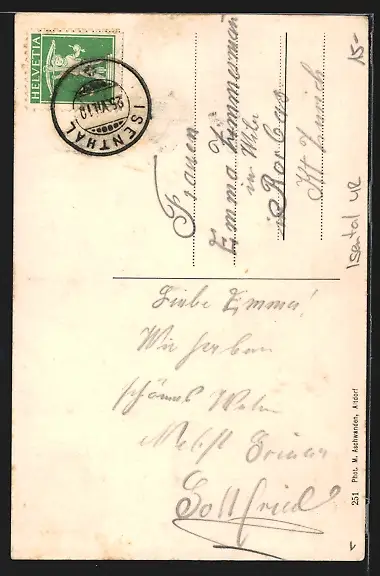 HELVETIA
ISENTHAL
25.VII.12
Frauen
Emma Zimmerman
in Wiler
Rorbas
Kt Zürich
15-
Isental UR
Liebe Emma!
Wir haben
schönes
Nebst
Gottfried
251 Phot. M. Aschwanden, Altdorf